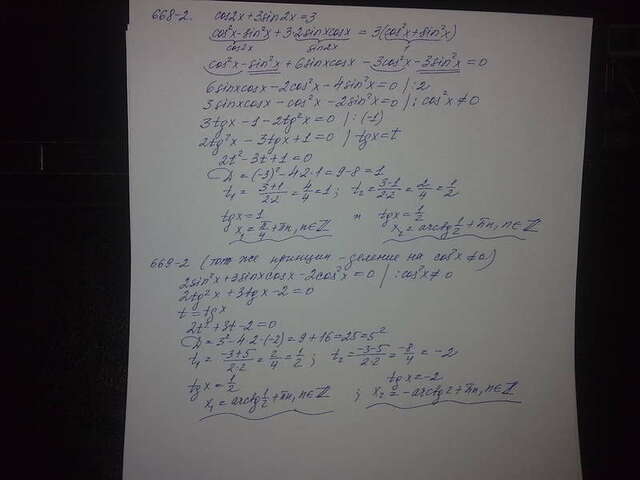 668-2. cos2x+3sin2x=3
cos²x-sin²x+3·2sinxcosx = 3(cos²x+sin²x)
cos2x sin2x 1
cos²x-sin²x+6sinxcosx-3cos²x-3sin²x=0
6sinxcosx-2cos²x-4sin²x=0 |:2
3sinxcosx-cos²x-2sin²x=0 |:cos²x≠0
3tgx-1-2tg²x=0 |:(-1)
2tg²x-3tgx+1=0 | tgx=t
2t²-3t+1=0
D=(-3)²-4·2·1=9-8=1
t₁=(3+1)/(2·2)=4/4=1; t₂=(3-1)/(2·2)=2/4=1/2
tgx=1 и tgx=1/2
x₁=π/4+πn, n∈Z x₂=arctg1/2+πn, n∈Z
669-2 (тот же принцип - деление на cos²x≠0)
2sin²x+3sinxcosx-2cos²x=0 |:cos²x≠0
2tg²x+3tgx-2=0
t=tgx
2t²+3t-2=0
D=3²-4·2·(-2)=9+16=25=5²
t₁=(-3+5)/(2·2)=2/4=1/2; t₂=(-3-5)/(2·2)=-8/4=-2
tgx=1/2 tgx=-2
x₁=arctg1/2+πn, n∈Z ; x₂=-arctg2+πn, n∈Z